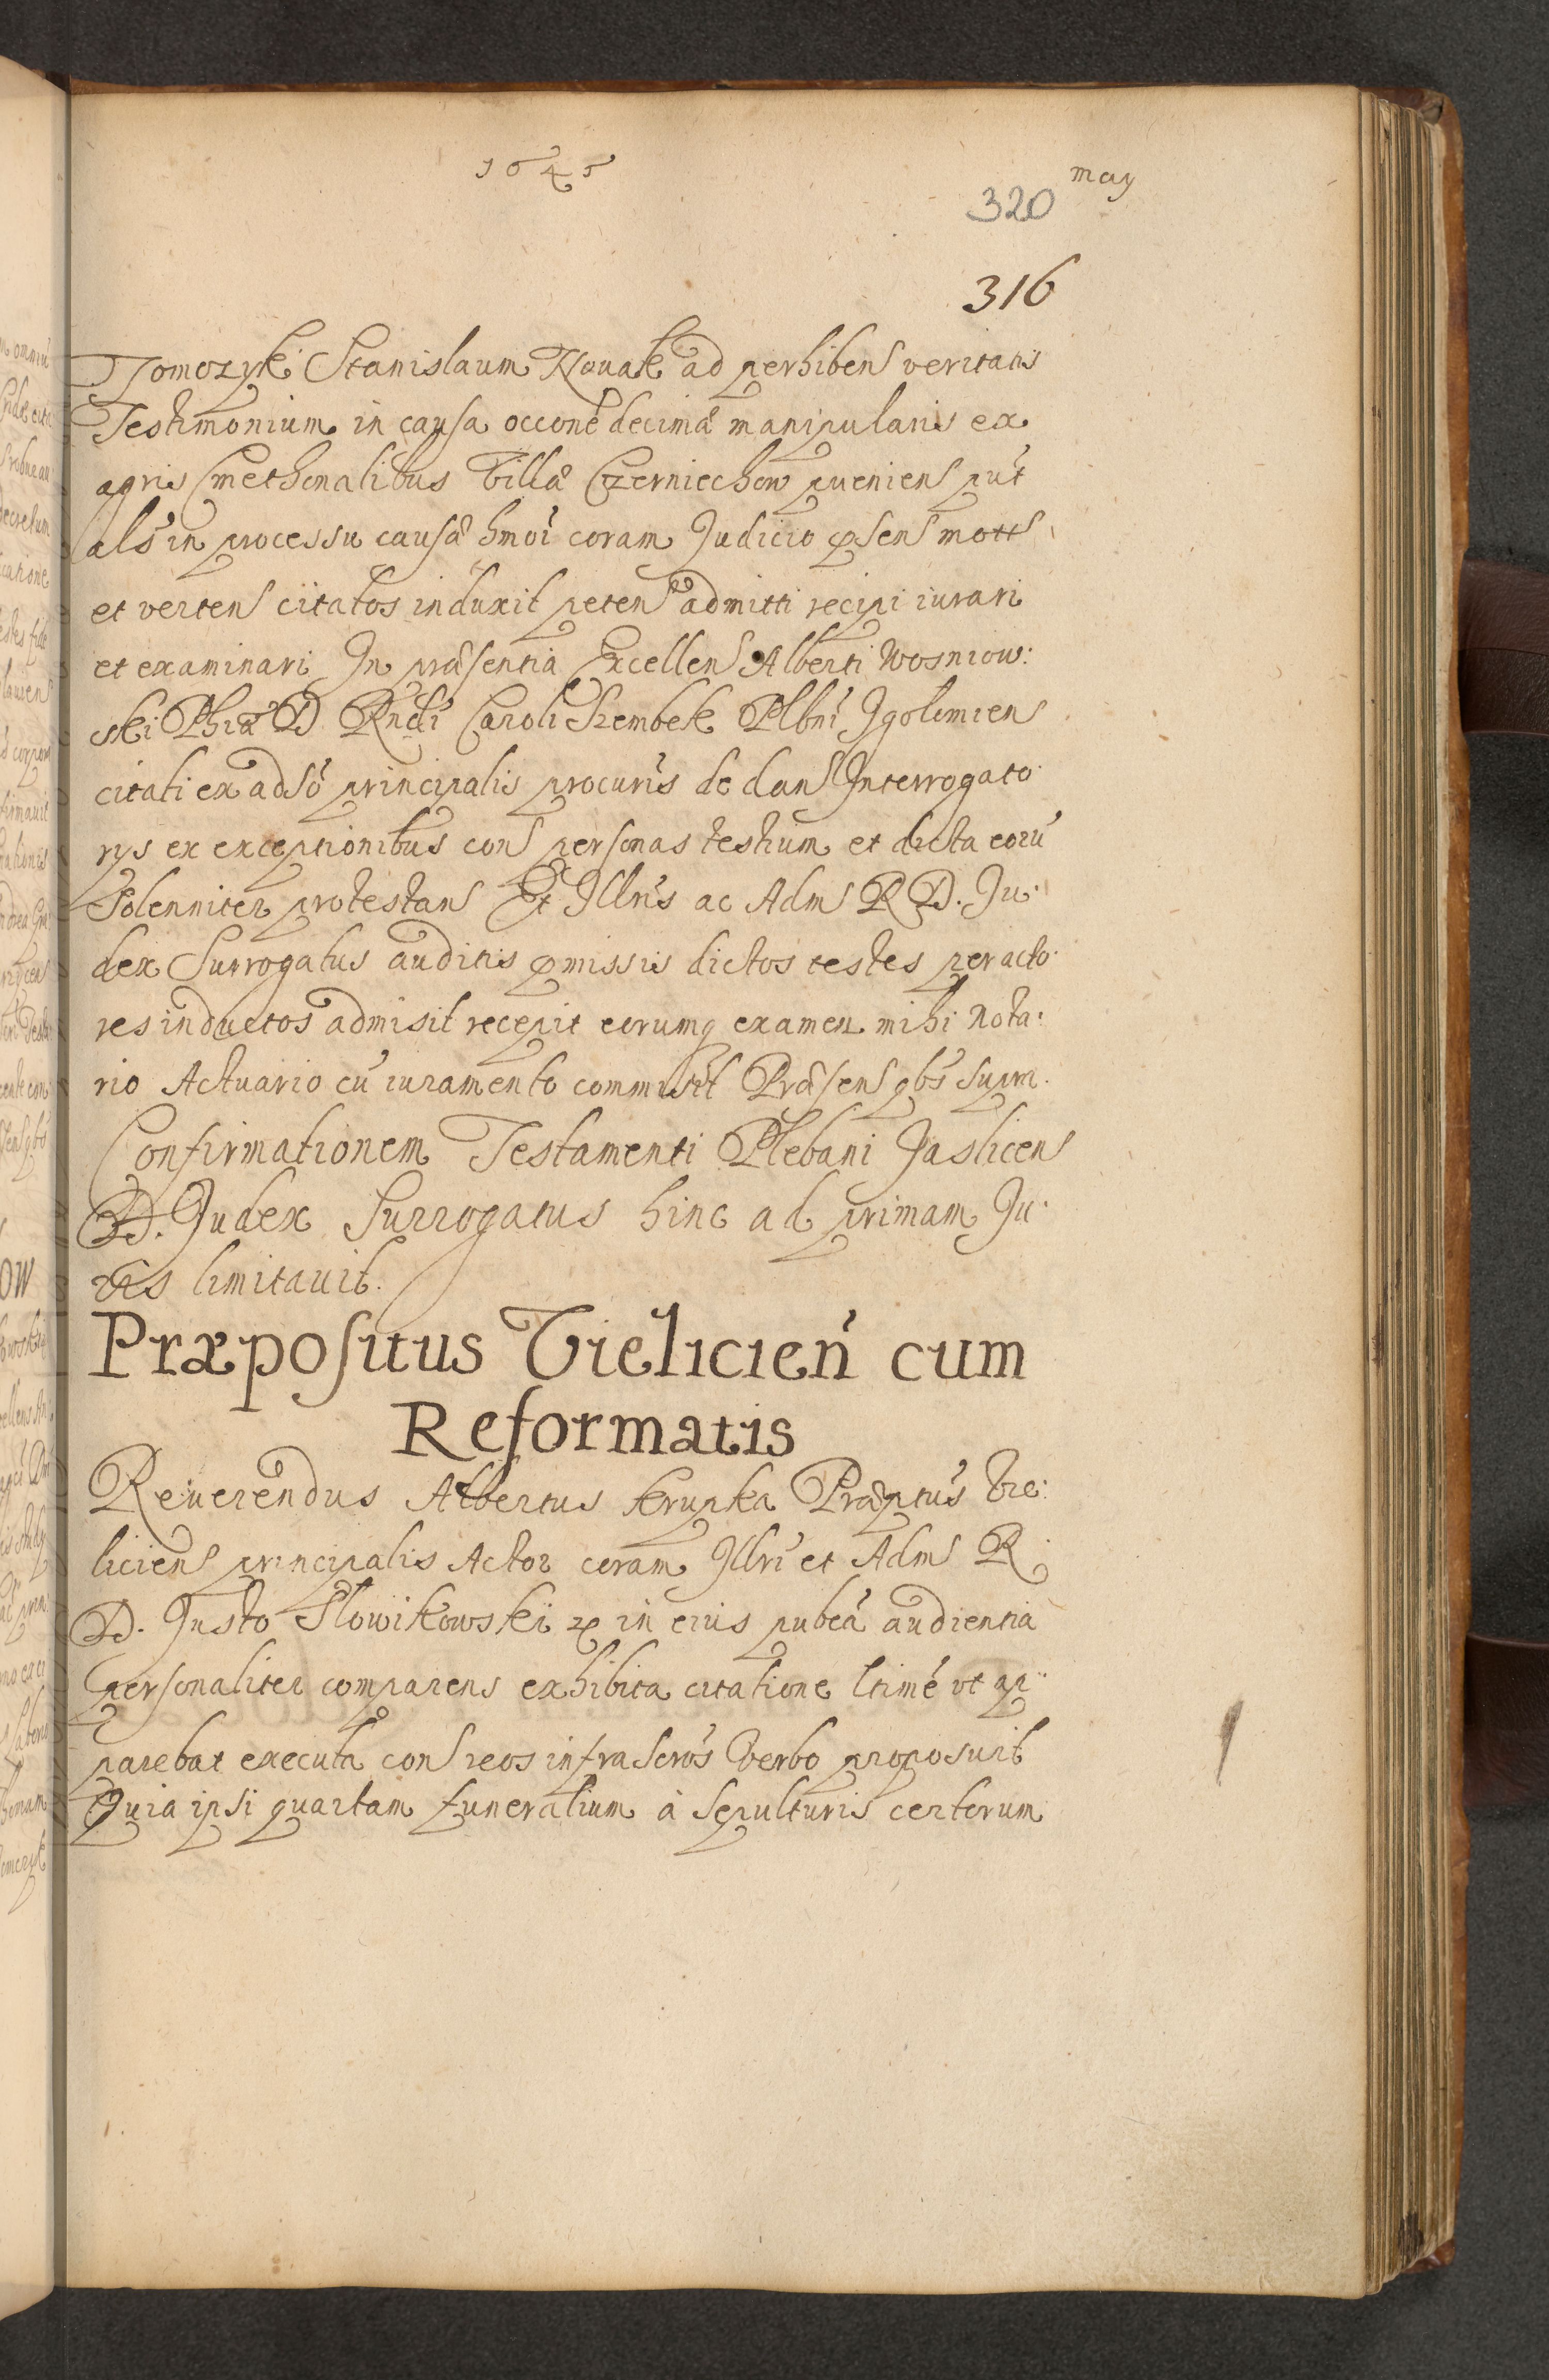 1645
may
320
316
Tomczyk Stanislaum Nouak ad perhiben veritatis
Testimonium in causa occone decimæ manipularis ex
agris Cmethonalibus Villæ Czerniechow pueniens put
als in processu causæ hmoi coram Judicio psens mott
et verten citatos induxit peten admitti recipi iurari
et examinari In præsentia Excellens Alberti Wosniow:
ski Phiæ D Rndi Caroli Szembek Plbni Igolimien
citati ex adso principalis procuris de dans Interrogato:
rijs ex exceptionibus cons personas testium et dicta eorū
Solenniter protestans Et Illris ac Adm R D. Ju:
dex Surrogatus auditis pmissis dictos testes per acto:
res inductos admisit recepit eorumq examen mihi Nota:
rio Actuario cū iuramento commisit Præsens qbs supra.
Confirmationem Testamenti Plebani Jaslicen
D. Judex Surrogatus hinc ad primam Ju:
ris limitauit.
Præpositus Vielicień cum
Reformatis
Reuerendus Albertus Krupka Præptus Vie:
liciens principalis Actor coram Illri et Adm R
D. Justo Słowikowski in eius pubca audientia
personaliter comparens exhibita citatione ltime vt ap:
parebat executa cons reos infrascros Verbo proposuit
Quia ipsi quartam funeralium à sepulturis certorum